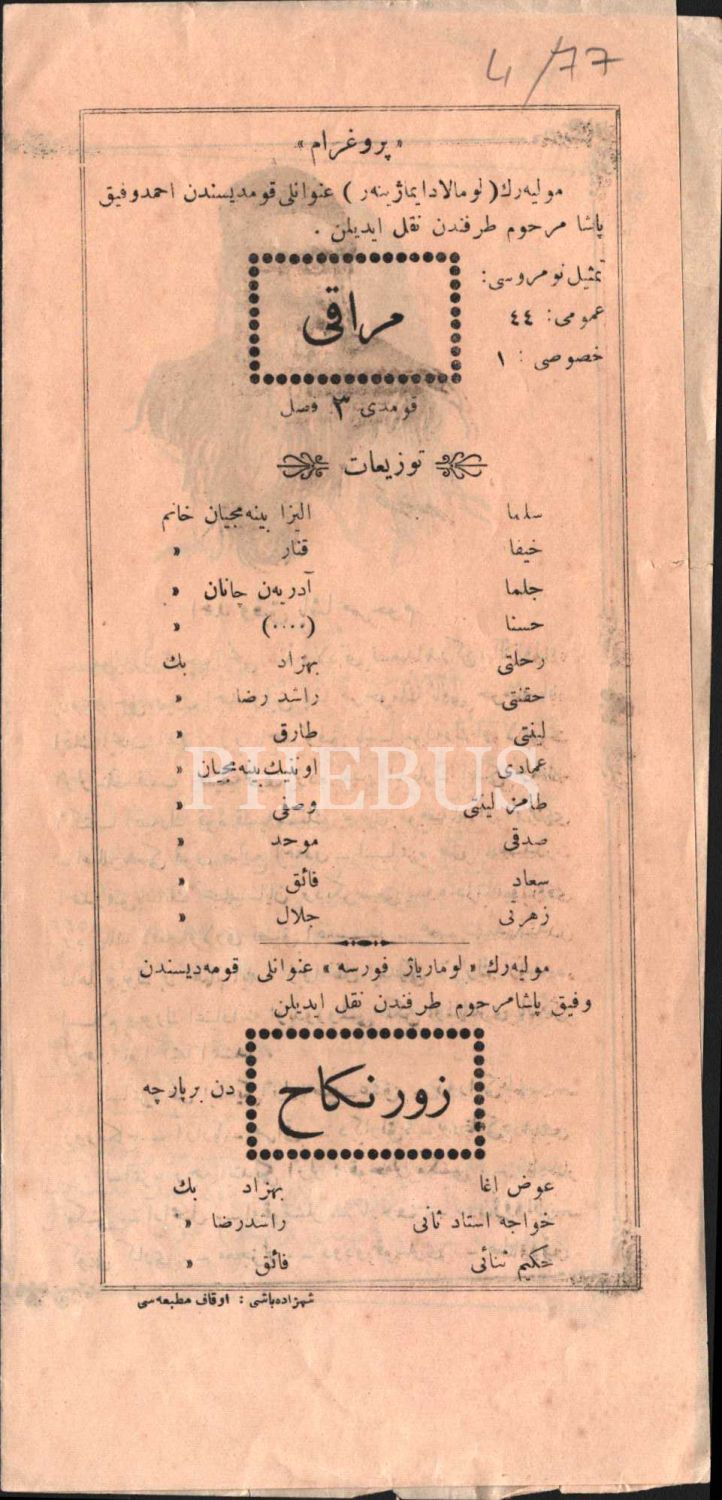 4/77
« پروغرام »
مولیه‌رك ( لومالادایماژینه‌ر ) عنوانلی قومدیسندن احمدوفیق
پاشا مرحوم طرفندن نقل ایدیلن .
تمثیل نومروسی :
عمومی : ٤٤
خصوصی : ١
مراقی
قومدی ٣ فصل
توزیعات
سلما الیزا بینه‌مجیان خانم
خیفا قنار «
جلما آدریه‌ن جانان «
حسنا (٠٠٠٠) «
رحلتی بهزاد بك
حقنتی راشد رضا «
لینتی طارق «
عمادی اونیك بینه‌مجیان «
طامز لینتی وصفی «
صدقی موحد «
سعاد فائق «
زهرتی جلال «
مولیه‌رك « لوماریاژ فورسه » عنوانلی قومه‌دیسندن
وفیق پاشامرحوم طرفندن نقل ایدیلن
زور نكاح
دن برپارچه
عوض اغا بهزاد بك
خواجه استاد ثانی راشدرضا «
حكیم ثنائی فائق «
شهزاده‌باشی : اوقاف مطبعه‌سی
PHEBUS